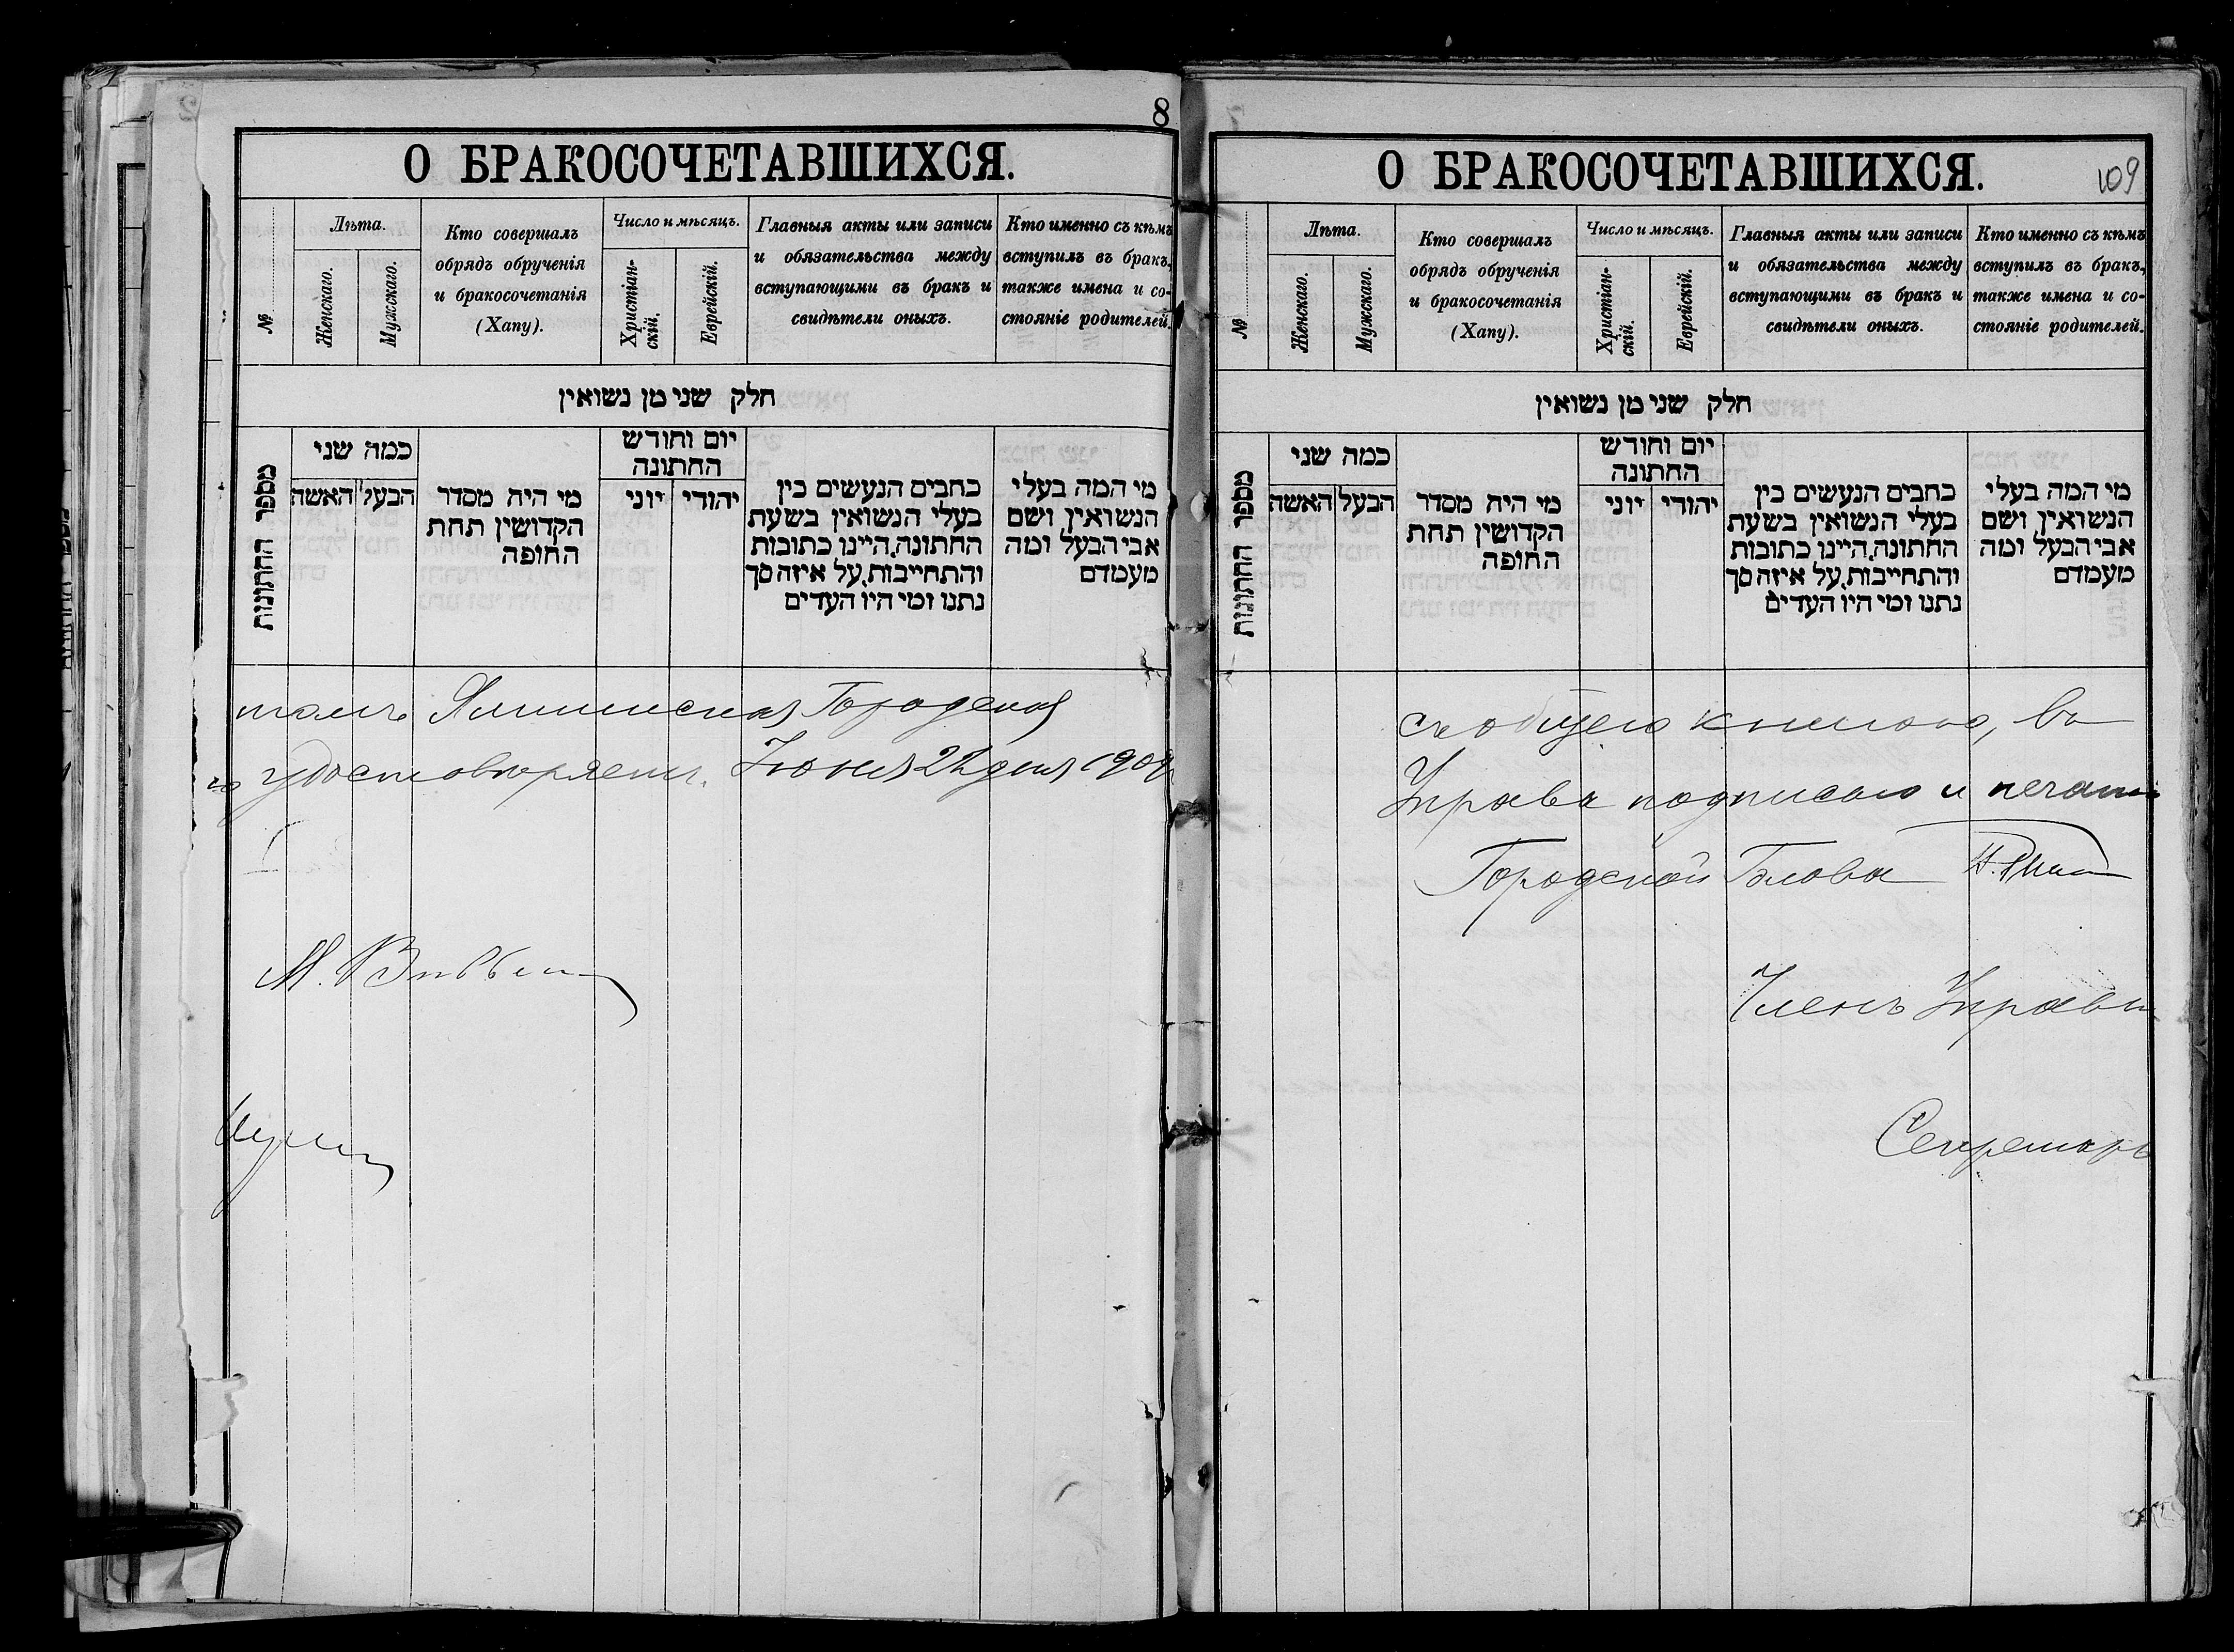 8
О БРАКОСОЧЕТАВШИХСЯ.
№
Лѣта.
Женскаго.
Мужскаго.
Кто совершалъ
обрядъ обрученія
и бракосочетанія
(Хапу).
Число и мѣсяцъ.
Христіан-
скій.
Еврейскій.
Главныя акты или записи
и обязательства между
вступающими въ бракъ и
свидѣтели оныхъ.
Кто именно съ кѣмъ
вступилъ въ бракъ,
также имена и со-
стояніе родителей.
חלק שני מן נשואין
מספר החתונות
כמה שני
הבעל
האשה
מי היה מסדר
הקדושין תחת
החופה
יום וחודש
החתונה
יהודי
יוני
כתבים הנעשים בין
בעלי הנשואין בשעת
החתונה, היינו כתובות
והתחייבות, על איזה סך
נתנו ומי היו העדים
מי המה בעלי
הנשואין, ושם
אבי הבעל ומה
מעמדם
Городская
удостовѣряетъ. Іюня 22 дня 1909
М.
109
О БРАКОСОЧЕТАВШИХСЯ.
№
Лѣта.
Женскаго.
Мужскаго.
Кто совершалъ
обрядъ обрученія
и бракосочетанія
(Хапу).
Число и мѣсяцъ.
Христіан-
скій.
Еврейскій.
Главныя акты или записи
и обязательства между
вступающими въ бракъ и
свидѣтели оныхъ.
Кто именно съ кѣмъ
вступилъ въ бракъ,
также имена и со-
стояніе родителей.
חלק שני מן נשואין
מספר החתונות
כמה שני
הבעל
האשה
מי היה מסדר
הקדושין תחת
החופה
יום וחודש
החתונה
יהודי
יוני
כתבים הנעשים בין
בעלי הנשואין בשעת
החתונה, היינו כתובות
והתחייבות, על איזה סך
נתנו ומי היו העדים
מי המה בעלי
הנשואין, ושם
אבי הבעל ומה
מעמדם
Управа подписью и печатью
Городской Голова
Членъ Управы
Секретарь